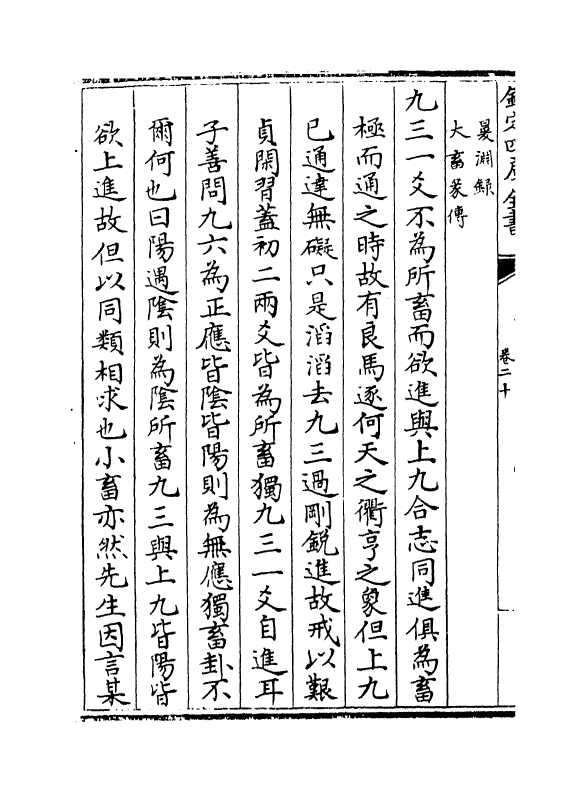 欽定四庫全書
卷二十
㬊淵錄
大畜彖傳
九三一爻不為所畜而欲進與上九合志同進俱為畜
極而通之時故有良馬逐何天之衢亨之象但上九
已通達無礙只是滔滔去九三過剛鋭進故戒以艱
貞閑習蓋初二兩爻皆為所畜獨九三一爻自進耳
子善問九六為正應皆陰皆陽則為無應獨畜卦不
爾何也曰陽遇陰則為陰所畜九三與上九皆陽皆
欲上進故但以同類相求也小畜亦然先生因言某